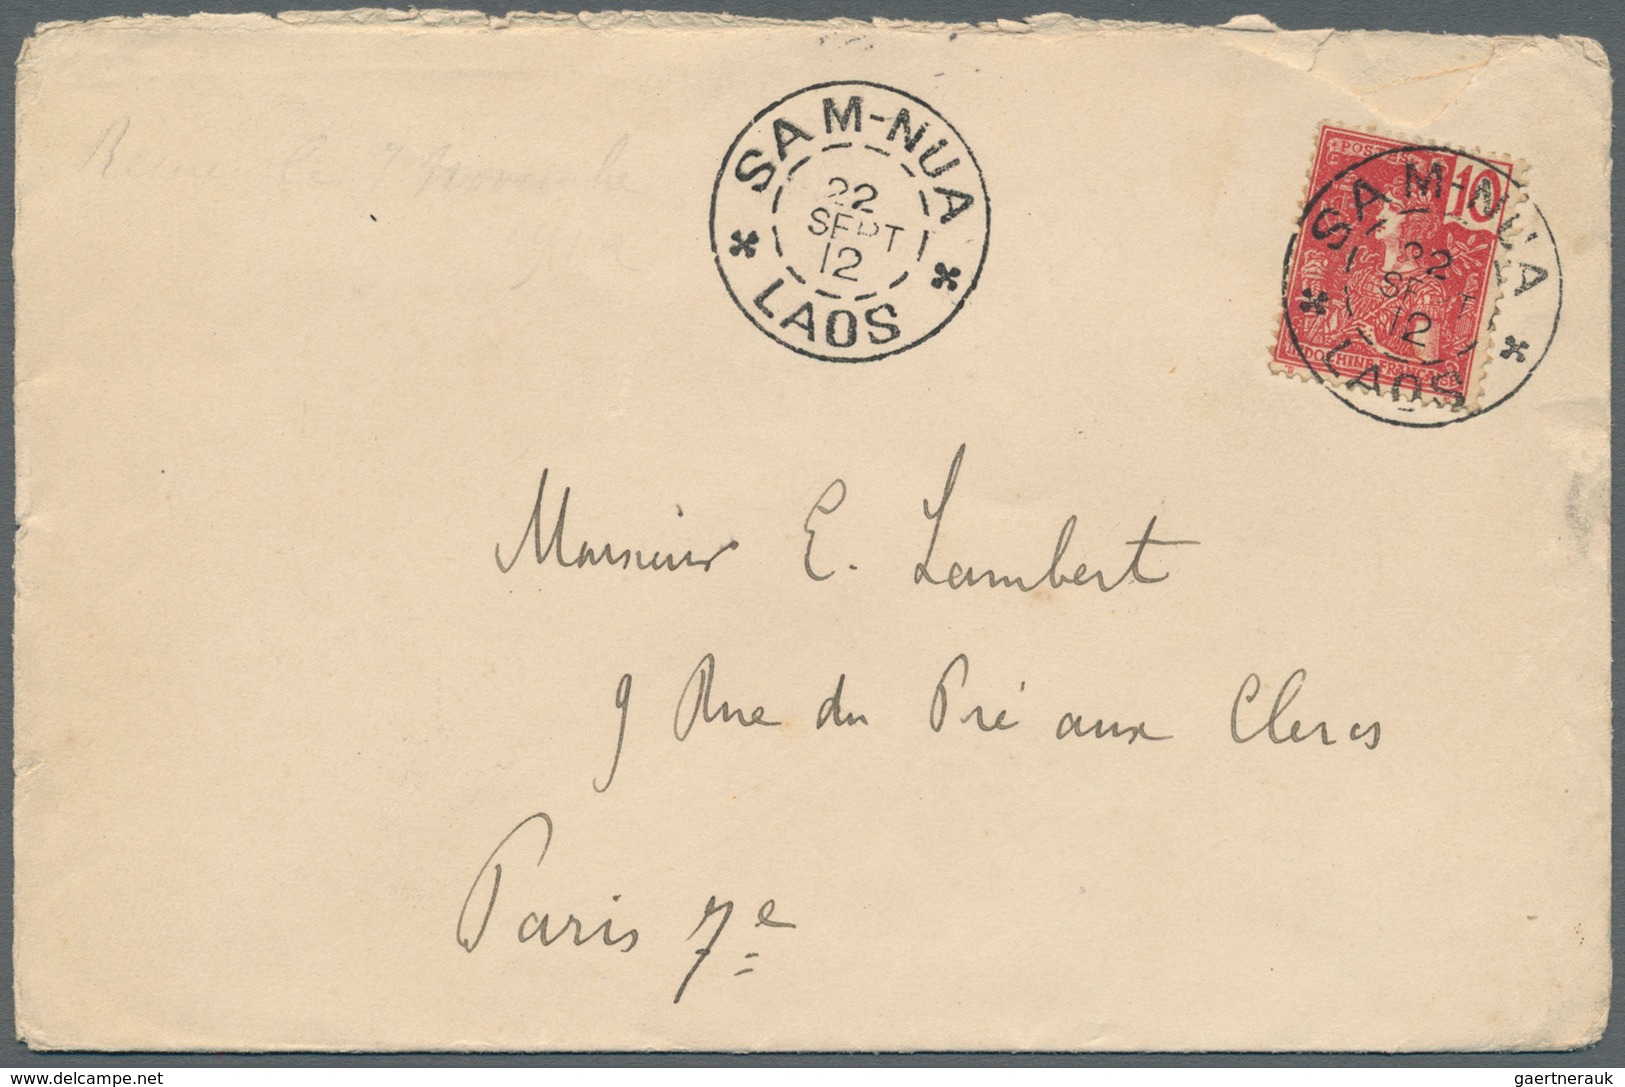 SAM-NUA
22
SEPT
12
LAOS
POSTES
10
INDOCHINE FRANÇAISE
SAM-NUA
22
SEPT
12
LAOS
le 7 Novembre
Monsieur E. Lambert
9 Rue du Pré aux Clercs
Paris 7e
delcampe.net
gaertnerauk